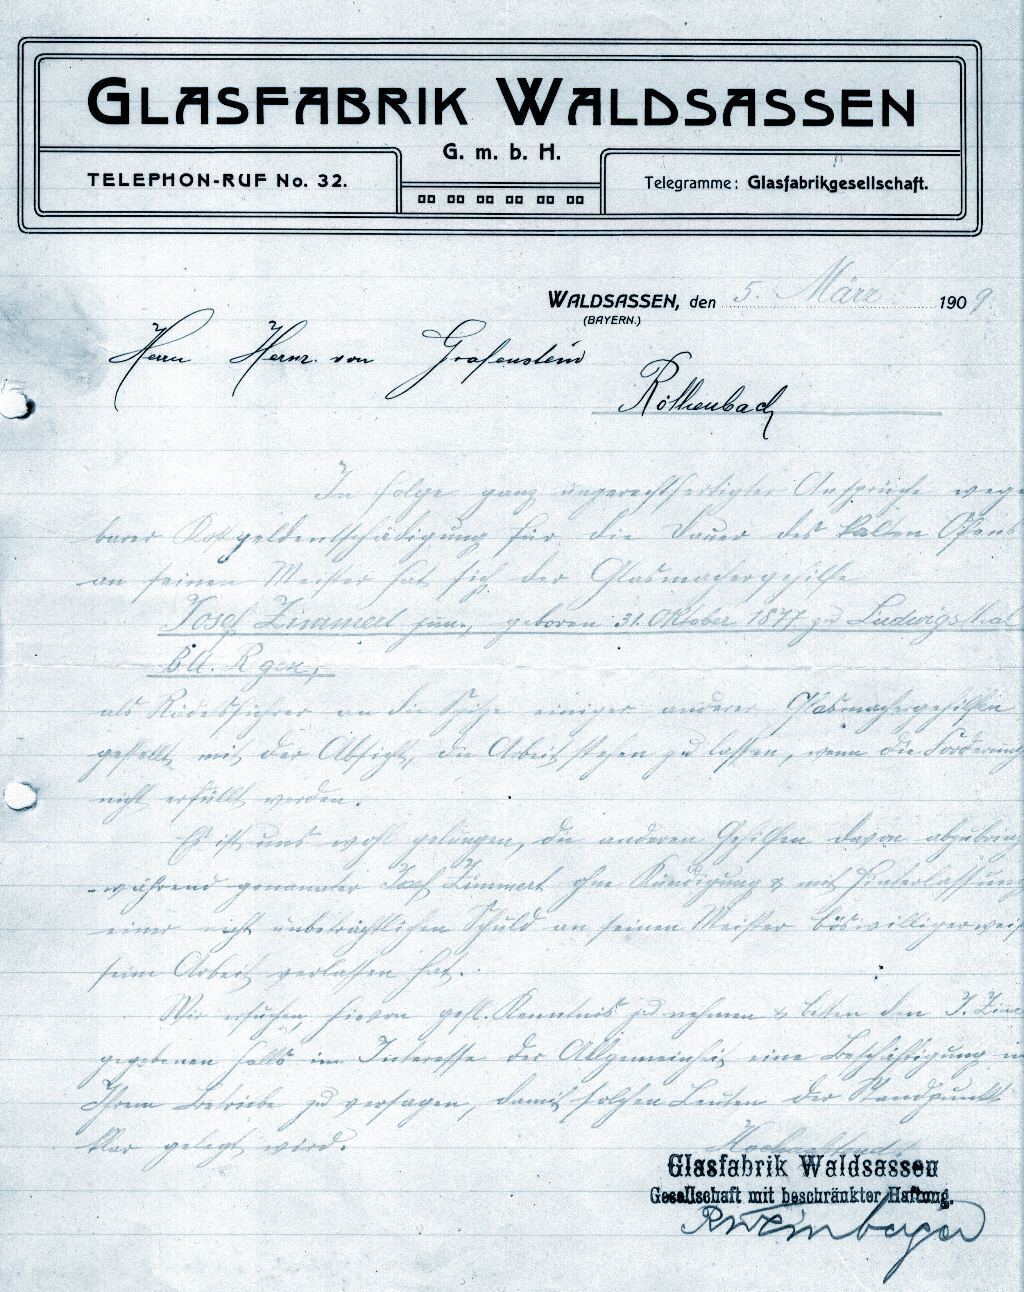 GLASFABRIK WALDSASSEN
G. m. b. H.
TELEPHON-RUF No. 32.
Telegramme: Glasfabrikgesellschaft.
WALDSASSEN, den 5. März 1909.
(BAYERN.)
Herrn Herm. von Grafenstein
Röthenbach
In Folge ganz ungerechtfertigter Ansprüche wege
barer Kostgeldentschädigung für die Dauer des kalten Ofens
an seinen Meister hat sich der Glasmachergehilfe
Josef Zimmerl jun., geboren 31. Oktober 1877 zu Ludwigsthal
B.A. Regen,
als Rädelsführer an die Spitze einiger anderer Glasmachergehilfen
gestellt mit der Absicht, die Arbeit stehen zu lassen, wenn die Forderung
nicht erfüllt werden.
Es ist uns wohl gelungen, die anderen Gehilfen davon abzubring
während genannter Josef Zimmerl ohne Kündigung & mit Hinterlassung
einer nicht unbeträchtlichen Schuld an seinen Meister böswilligerweis
seine Arbeit verlassen hat.
Wir ersuchen, hievon gefl. Kenntnis zu nehmen & bitten den J. Zim
gegebenen Falls im Interesse der Allgemeinheit eine Beschäftigung in
Ihrem Betriebe zu versagen, damit solchen Leuten der Standpunkt
klar gelegt wird.
Hochachtend
Glasfabrik Waldsassen
Gesellschaft mit beschränkter Haftung.